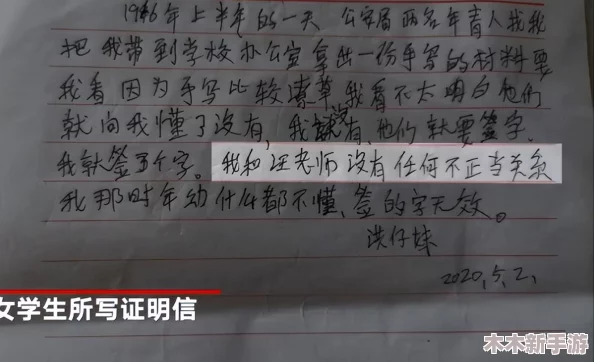 1966年上半年的一天 公安局两名年青人找我
把我带到学校办公室拿出一份手写的材料要
我看因为手写比较潦草我看不太明白他们
就问我懂了没有,我说没有,他们就要签字,
我就签了个字。我和汪老师没有任何不正当关系
我那时年幼什么都不懂,签的字无效。
洪仔妹
2020,5,2,
女学生所写证明信
木木新手游